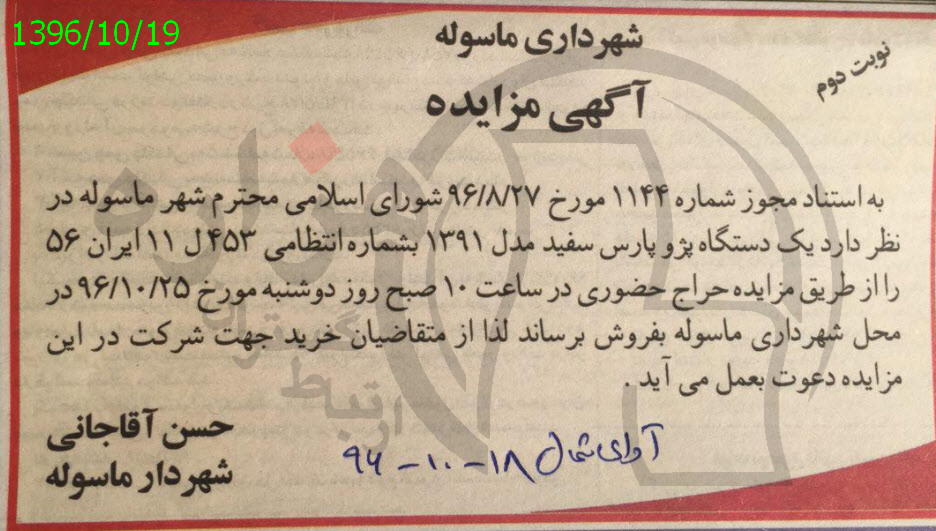 1396/10/19
شهرداری ماسوله
نوبت دوم
آگهی مزایده
به استناد مجوز شماره ۱۱۴۴ مورخ ۹۶/۸/۲۷ شورای اسلامی محترم شهر ماسوله در
نظر دارد یک دستگاه پژو پارس سفید مدل ۱۳۹۱ بشماره انتظامی ۴۵۳ ل ۱۱ ایران ۵۶
را از طریق مزایده حراج حضوری در ساعت ۱۰ صبح روز دوشنبه مورخ ۹۶/۱۰/۲۵ در
محل شهرداری ماسوله بفروش برساند لذا از متقاضیان خرید جهت شرکت در این
مزایده دعوت بعمل می آید .
حسن آقاجانی
شهردار ماسوله
آوای شمال ۱۸-۱۰-۹۶
هزاره
ارتباط